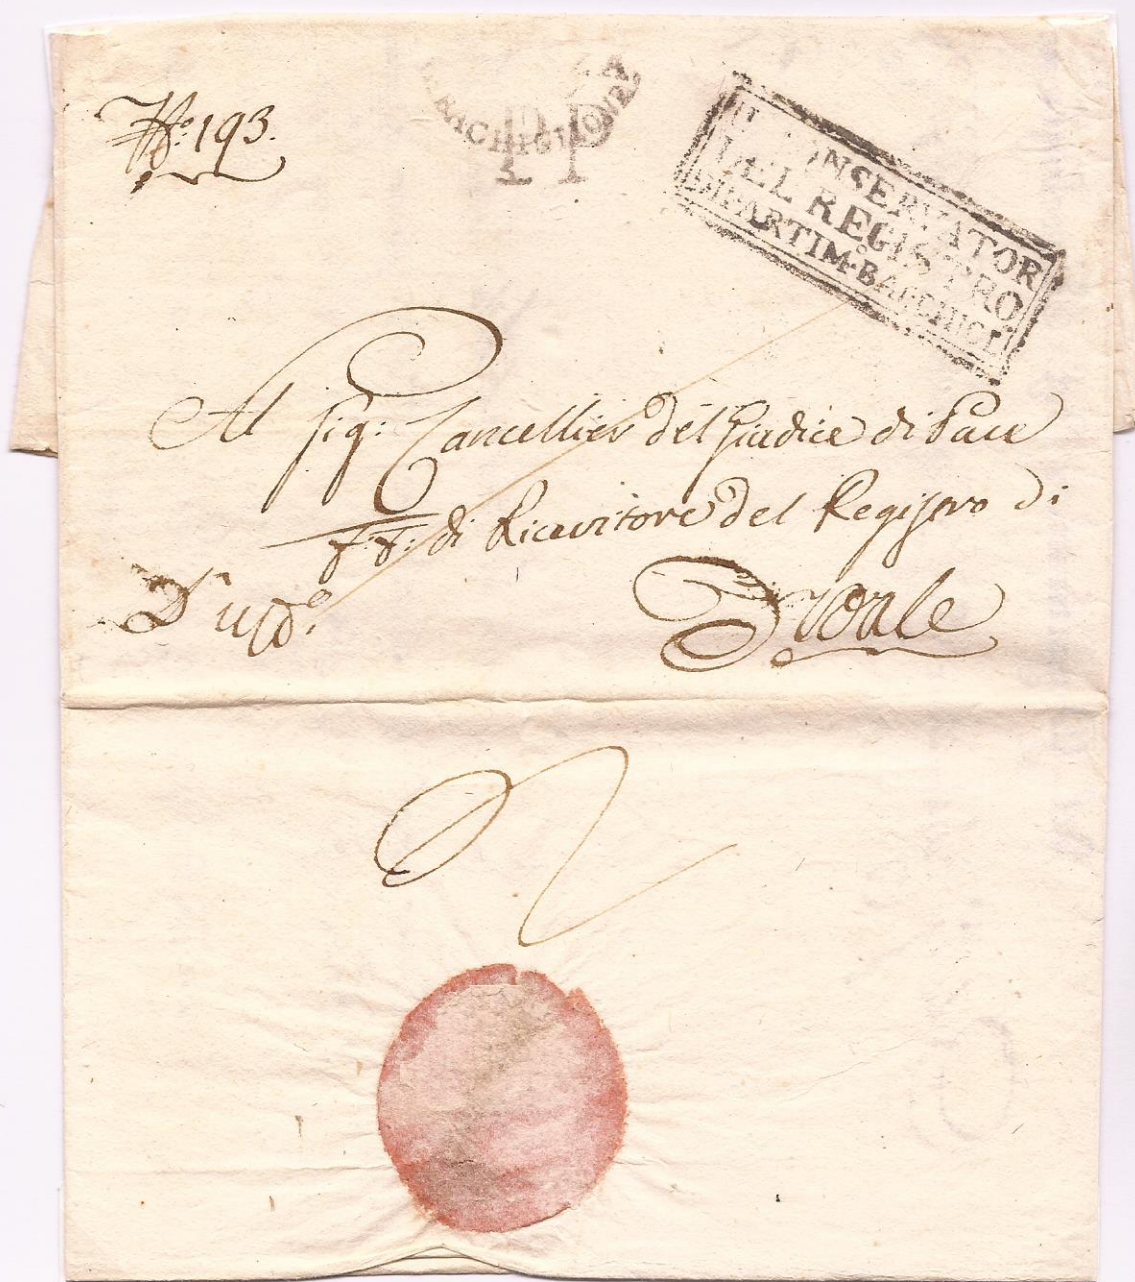 N.º 193.
BACHIGLIONE
IL CONSERVATOR
DEL REGISTRO
DIPARTIM.º BACCHIGL.
Al Sig.: Cancellier del Giudice di Pace
F. F. di Ricevitore del Registro di
D'uff.º